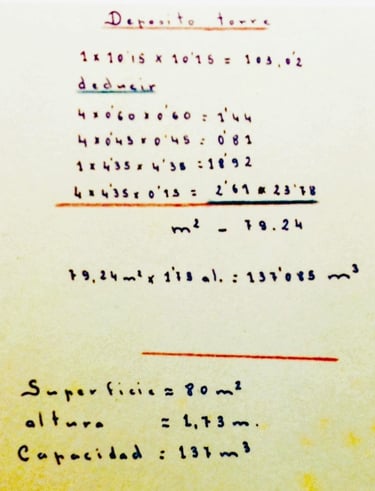 Deposito torre
1 x 10'15 x 10'15 = 103,02
deducir
4 x 0'60 x 0'60 = 1'44
4 x 0'45 x 0'45 = 0'81
1 x 4'35 x 4'35 = 18'92
4 x 4'35 x 0'15 = 2'61 = 23'78
m² - 79.24
79,24 m² x 1'73 al. = 137'085 m³
Superficie = 80 m²
altura = 1,73 m.
Capacidad = 137 m³